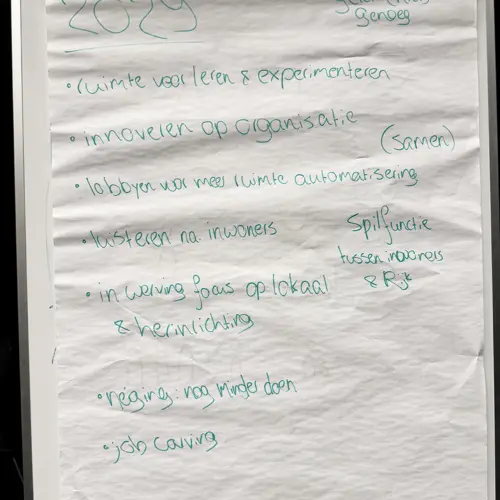 2029
genoeg
• ruimte voor leren & experimenteren
• innoveren op organisatie
(samen)
• lobbyen voor meer ruimte automatisering
• luisteren na. inwoners
Spilfunctie
tussen inwoners
& Rijk
• in werving focus op lokaal
& herinrichting
• neiging: nog minder doen
• job carving